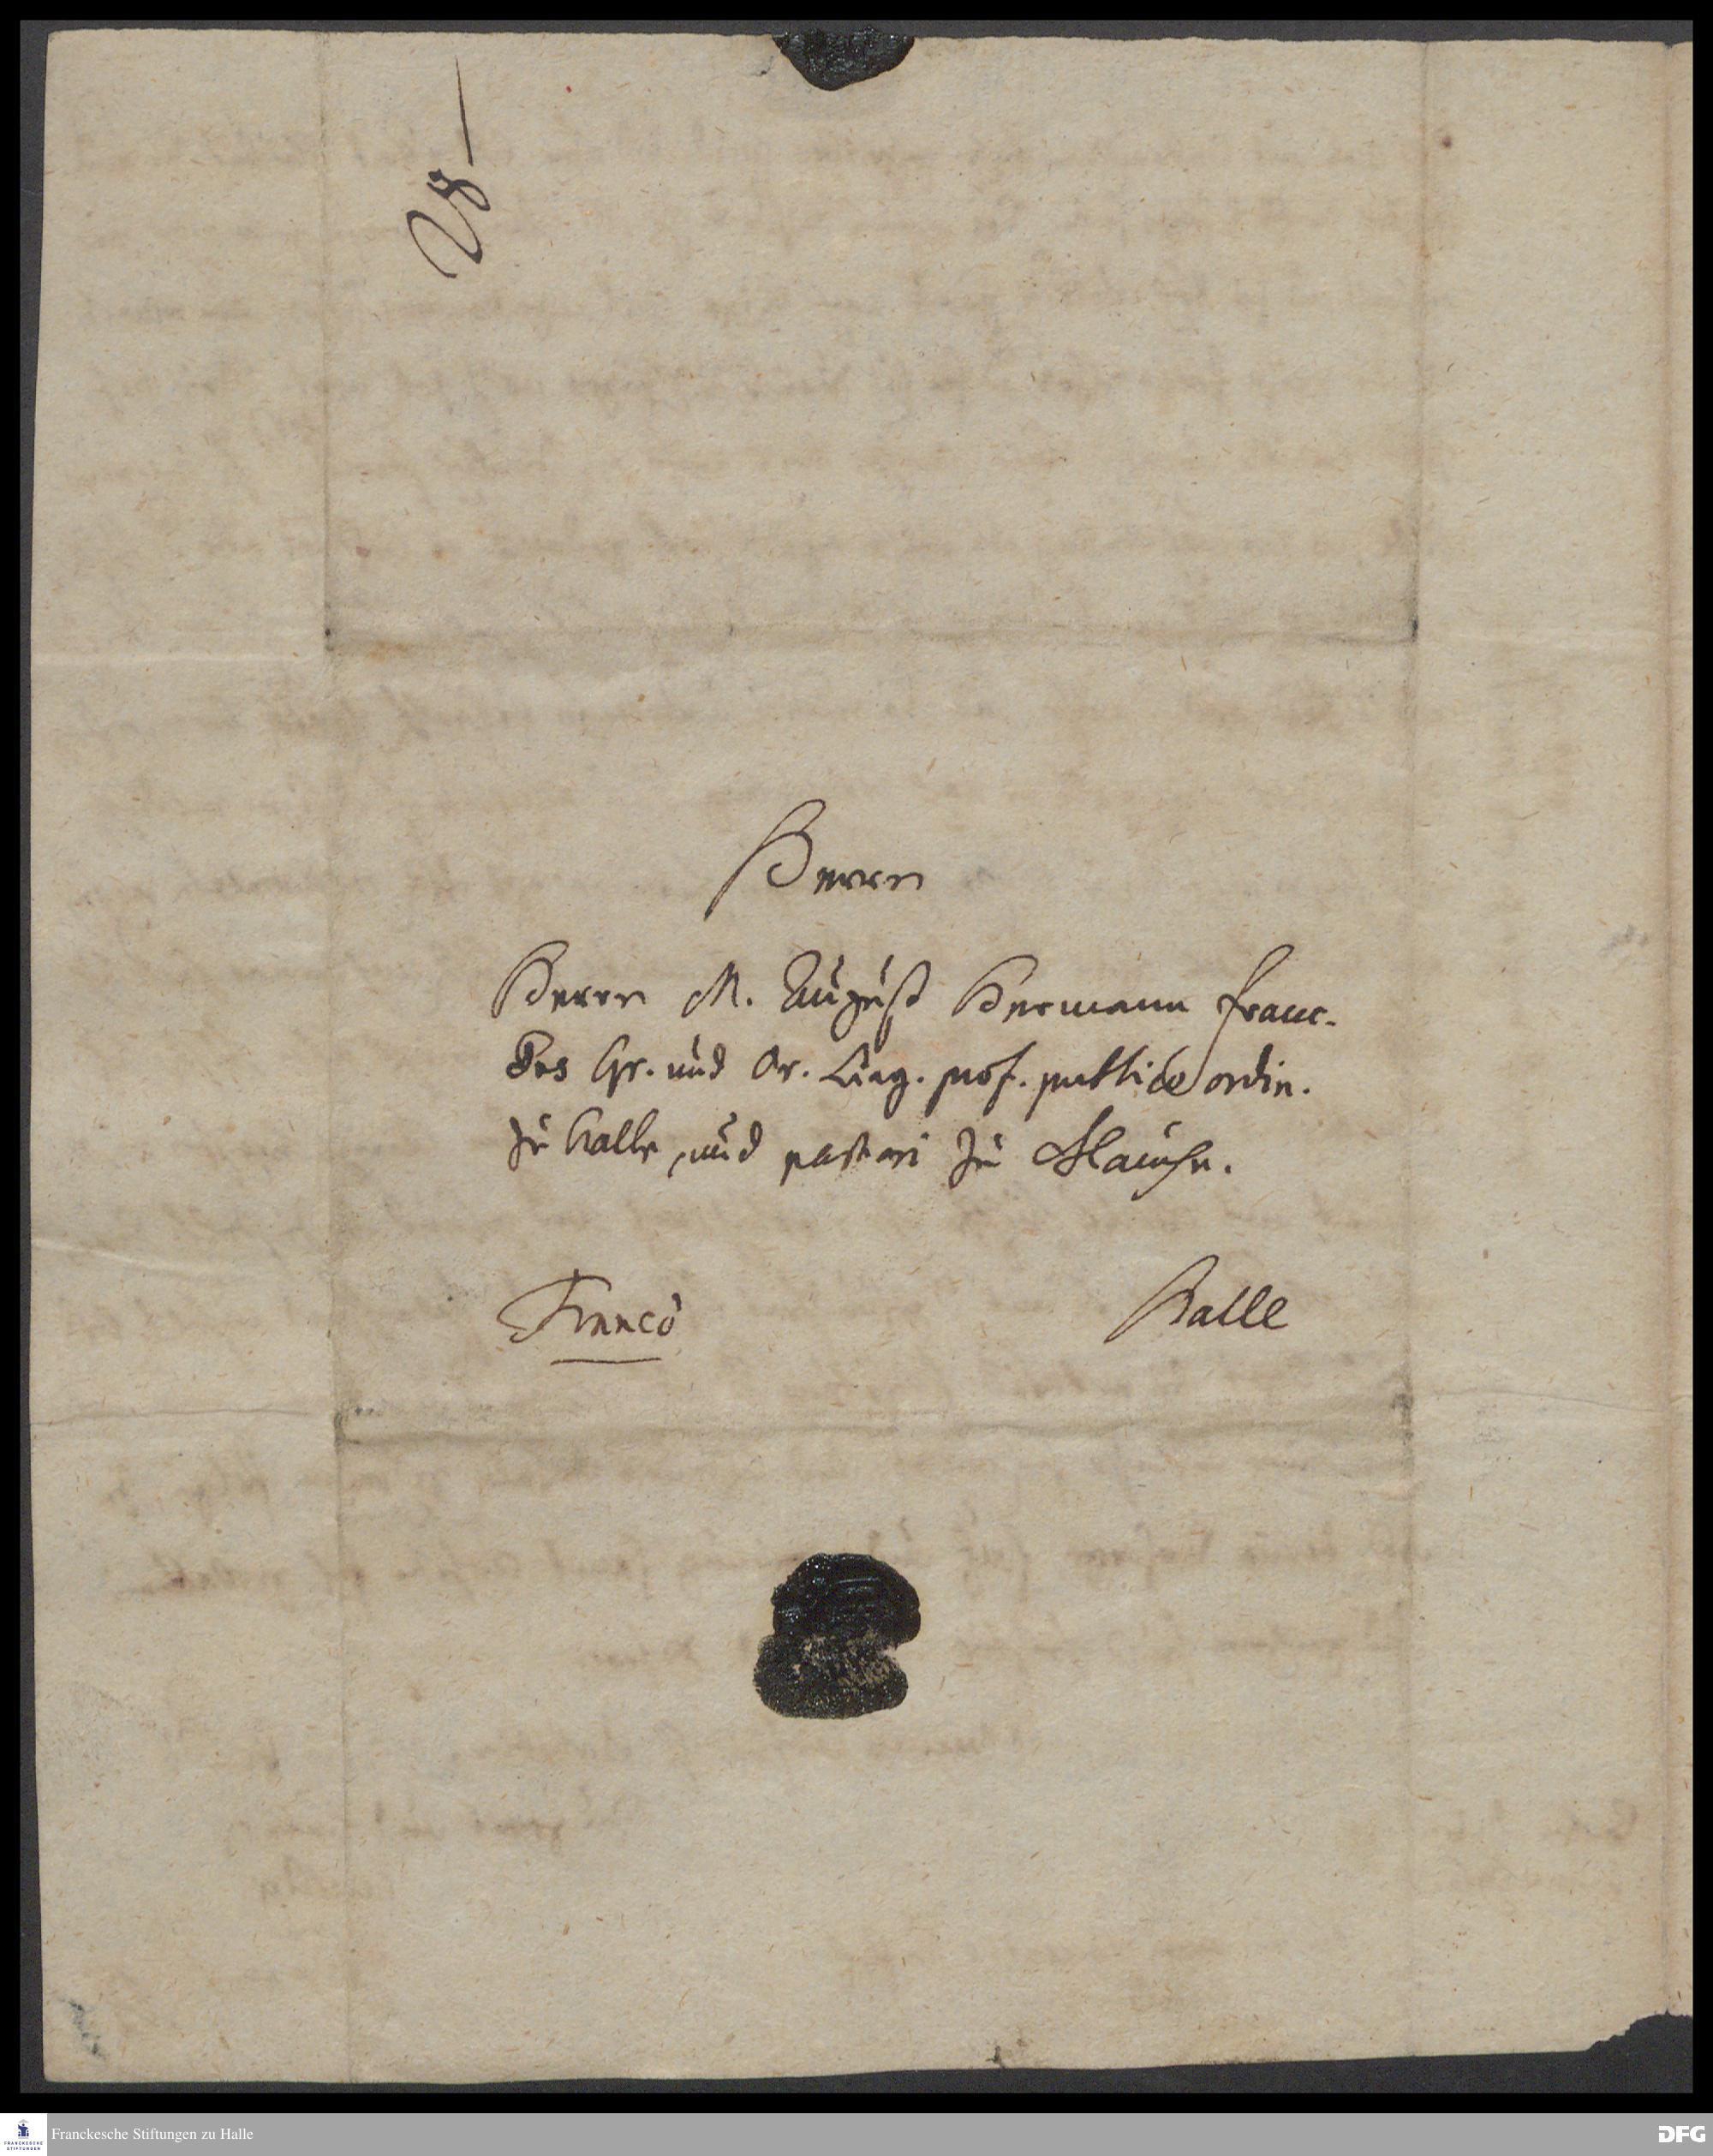 Herrn
Herrn M. August Hermann Franc-
des Gr. und Or. Ling. prof. publico ordin.
zu Halle, und pastori zu Glaucha.
Franco
Halle
Franckesche Stiftungen zu Halle
FRANCKESCHE
STIFTUNGEN
DFG